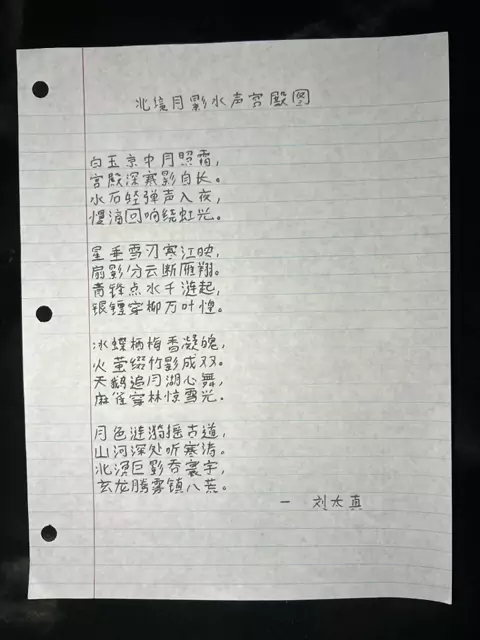 北境月影水声宫殿图
白玉京中月照霜，
宫殿深寒影自长。
水石轻弹声入夜，
慢滴回响绕虹光。
星垂雪刃寒江映，
扇影分云断雁翔。
青锋点水千涟起，
银锤穿柳万叶惶。
冰蝶栖梅香凝魄，
火萤缀竹影成双。
天鹅追月湖心舞，
麻雀穿林惊雪光。
月色涟漪摇古道，
山河深处听寒涛。
北溟巨影吞寰宇，
玄龙腾雾镇八荒。
— 刘太真